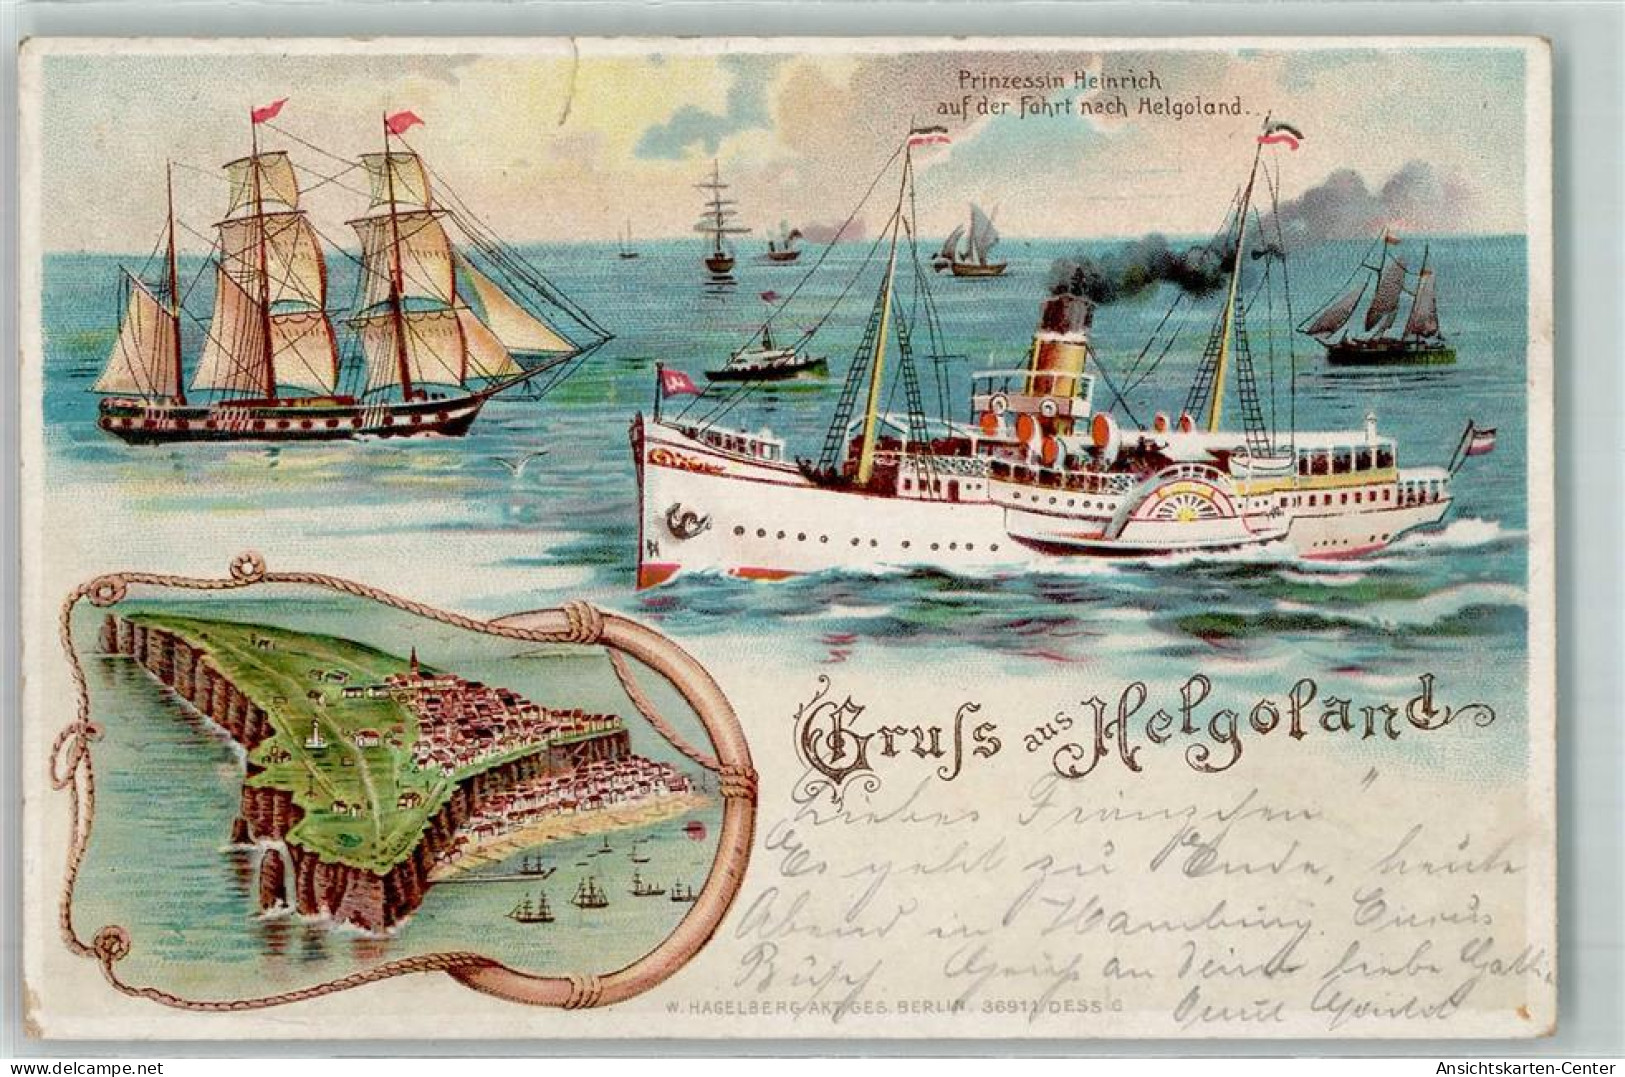 Prinzessin Heinrich
auf der Fahrt nach Helgoland.
Gruſs aus Helgoland
Liebes Fränzchen
Es geht zu Ende, heute
Abend in Hamburg. Circus
Busch. Gruß an Deine liebe
W. HAGELBERG AKT.GES. BERLIN. 36911 DESS 6
Ansichtskarten-Center